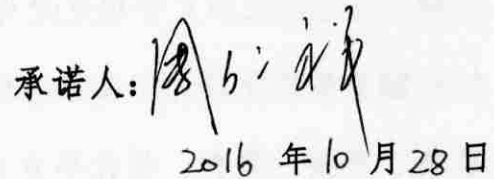 承诺人:
2016年10月28日